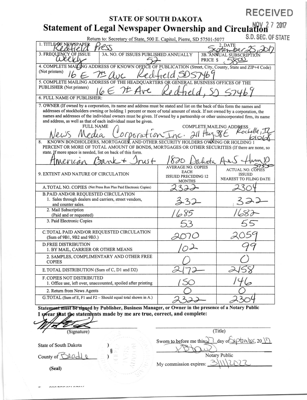 STATE OF SOUTH DAKOTA
RECEIVED
Statement of Legal Newspaper Ownership and Circulation
S.D. SEC. OF STATE
Return to: Secretary of State, 500 E. Capitol, Pierre, SD 57501-5077
1. TITLE OF NEWSPAPER
Redfield Press
2. DATE
3. FREQUENCY OF ISSUE
Weekly
3A. NO. OF ISSUES PUBLISHED ANNUALLY
52
3B. ANNUAL SUBSCRIPTION
PRICE $
4. COMPLETE MAILING ADDRESS OF KNOWN OFFICE OF PUBLICATION (Street, City, County, State and ZIP+4 Code)
(Not printers)
16 E 7th Ave Redfield SD 57469
5. COMPLETE MAILING ADDRESS OF THE HEADQUARTERS OF GENERAL BUSINESS OFFICES OF THE
PUBLISHER (Not printers)
16 E 7th Ave Redfield, SD 57469
6. FULL NAME OF PUBLISHER:
7. OWNER (If owned by a corporation, its name and address must be stated and list on the back of this form the names and
addresses of stockholders owning or holding 1 percent or more of total amount of stock. If not owned by a corporation, the
names and addresses of the individual owners must be given. If owned by a partnership or other unincorporated firm, its name
and address, as well as that of each individual must be given.
FULL NAME
COMPLETE MAILING ADDRESS
News Media Corporation Inc.
8. KNOWN BONDHOLDERS, MORTGAGEE AND OTHER SECURITY HOLDERS OWNING OR HOLDING 1
PERCENT OR MORE OF TOTAL AMOUNT OF BONDS, MORTGAGES OR OTHER SECURITIES (If there are none, so
state. If more space is needed, list on back of this form.
American Bank & Trust
1820 Dakota Ave S - Huron SD
9. EXTENT AND NATURE OF CIRCULATION
AVERAGE NO. COPIES
EACH
ISSUED PRECEDING 12
MONTHS
ACTUAL NO. COPIES
ISSUED
NEAREST TO FILING DATE
A. TOTAL NO. COPIES (Net Press Run Plus Paid Electronic Copies)
2322
2304
B. PAID AND/OR REQUESTED CIRCULATION
1. Sales through dealers and carriers, street vendors,
and counter sales
332
322
2. Mail Subscription
(Paid and or requested)
1685
1682
3. Paid Electronic Copies
53
55
C. TOTAL PAID AND/OR REQUESTED CIRCULATION
(Sum of 9B1, 9B2 and 9B3.)
2070
2059
D. FREE DISTRIBUTION
1. BY MAIL, CARRIER OR OTHER MEANS
102
99
2. SAMPLES, COMPLIMENTARY AND OTHER FREE
COPIES
0
0
E. TOTAL DISTRIBUTION (Sum of C, D1 and D2)
2172
2158
F. COPIES NOT DISTRIBUTED
1. Office use, left over, unaccounted, spoiled after printing
150
146
2. Return from News Agents
0
0
G. TOTAL (Sum of E, F1 and F2 - Should equal total shown in A.)
2322
2304
Statement must be signed by Publisher, Business Manager, or Owner in the presence of a Notary Public
I swear that the statements made by me are true, correct, and complete:
(Signature)
(Title)
State of South Dakota
County of Beadle
(Seal)
Sworn to before me this
day of September, 20
Notary Public
My commission expires: